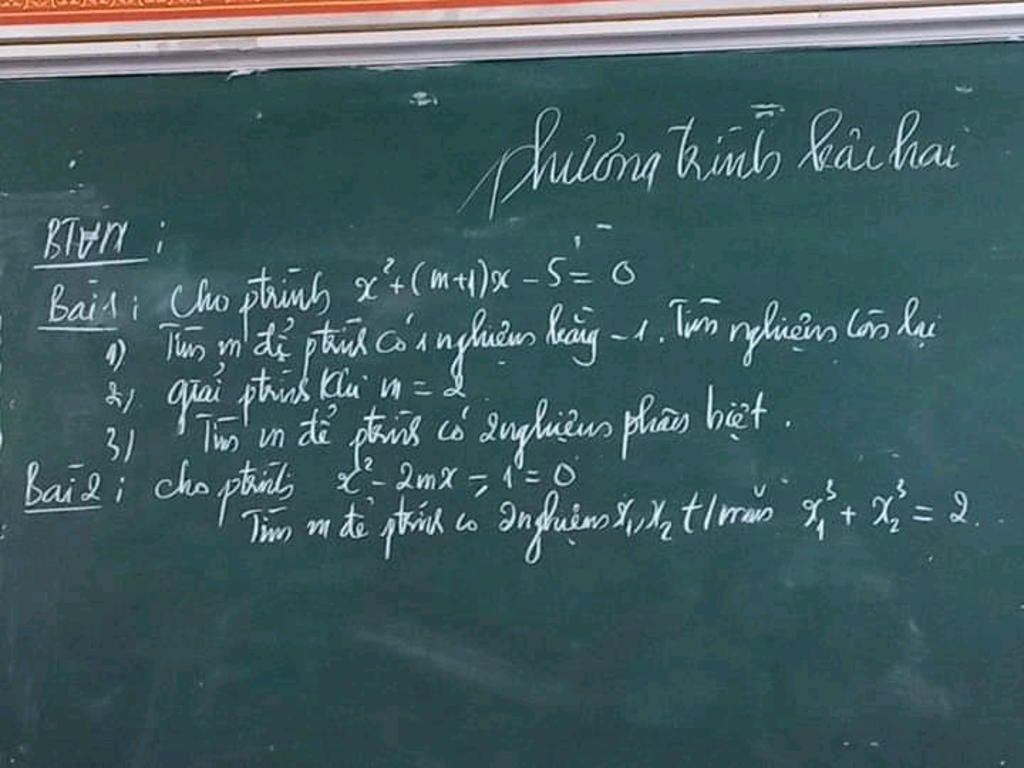 phương trình bậc hai
BTVN :
Bài 1 : Cho ptrình x² + (m+1)x - 5 = 0
1) Tìm m để ptrình có 1 nghiệm bằng -1. Tìm nghiệm còn lại
2) giải ptrình khi m = 2
3) Tìm m để ptrình có 2 nghiệm phân biệt.
Bài 2 : cho ptrình x² - 2mx - 1 = 0
Tìm m để ptrình có 2 nghiệm x₁, x₂ t/mãn x₁³ + x₂³ = 2.